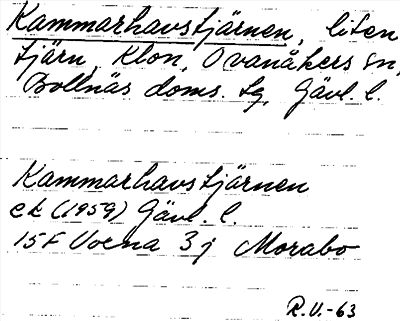 Kammarhavstjärnen, liten
tjärn, Klon, Ovanåkers sn,
Bollnäs doms. tg, Gävl. l.
Kammarhavstjärnen
ek (1959) Gävl. l.
15F Voxna 3j Morabo
R.V.-63